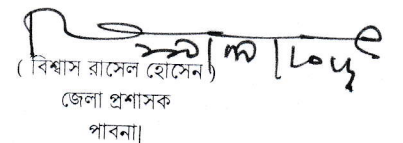 ( বিশ্বাস রাসেল হোসেন )
জেলা প্রশাসক
পাবনা|